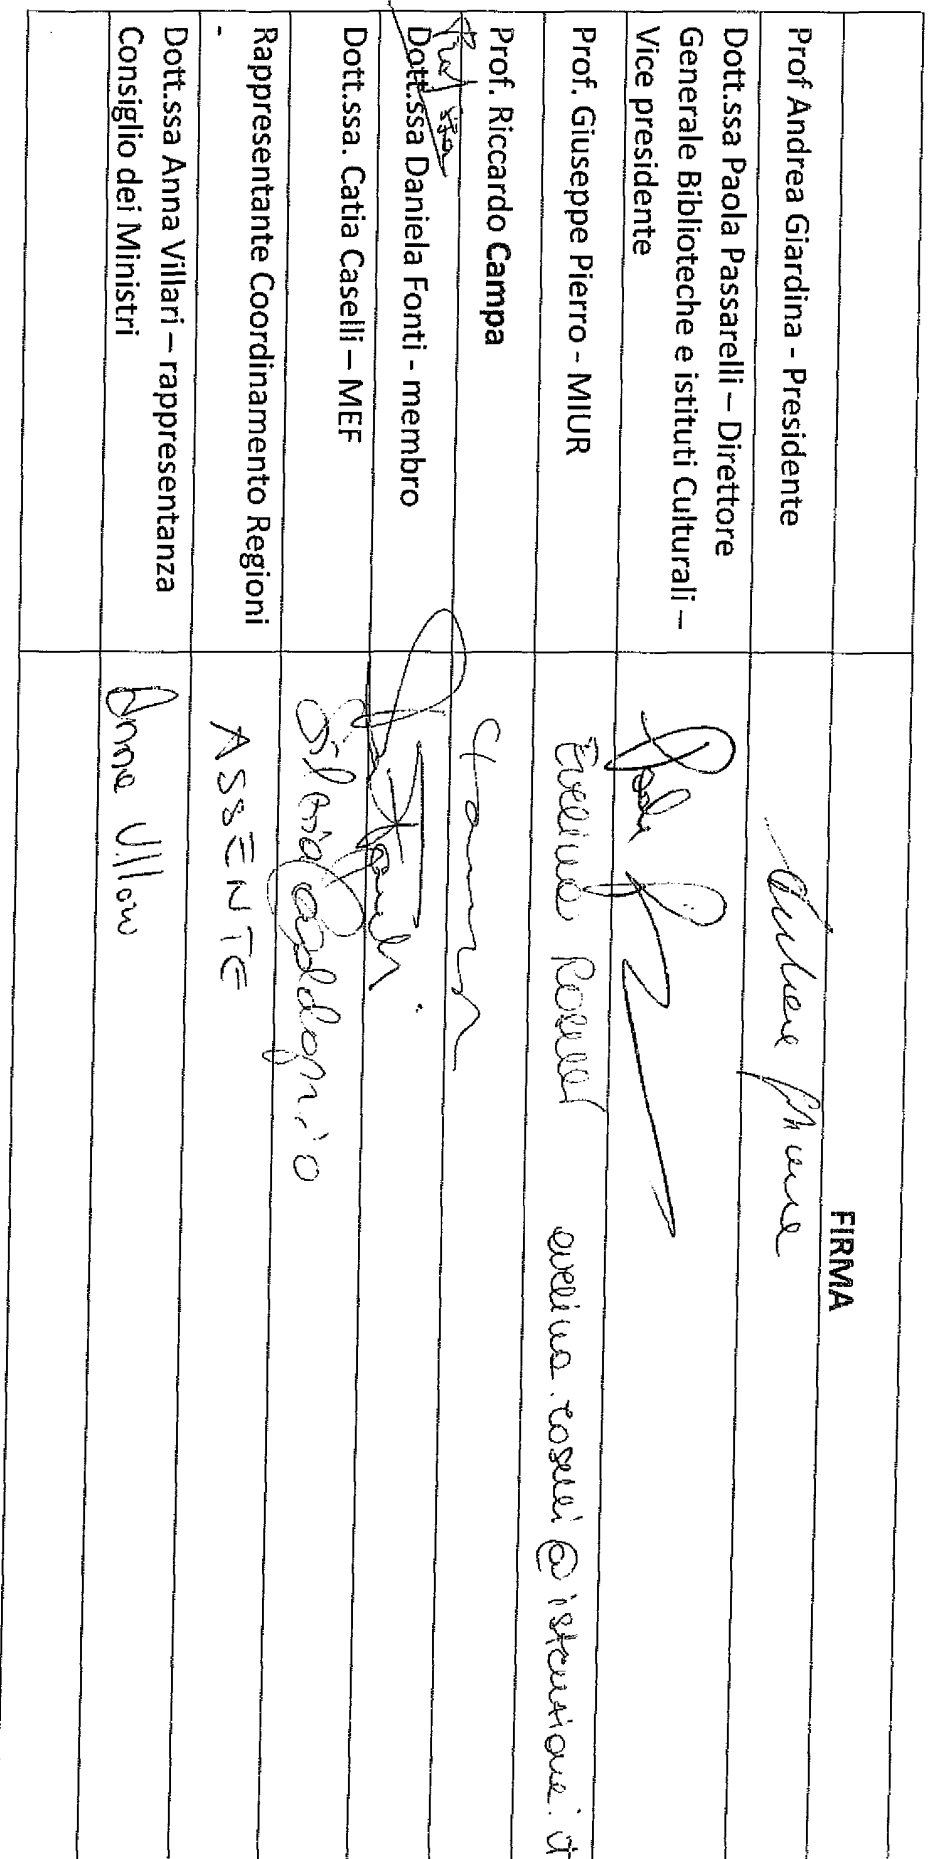 FIRMA
Prof Andrea Giardina - Presidente
Dott.ssa Paola Passarelli – Direttore
Generale Biblioteche e istituti Culturali –
Vice presidente
Prof. Giuseppe Pierro - MIUR
evelina.roselli@istruzione.it
Prof. Riccardo Campa
Dott.ssa Daniela Fonti - membro
Dott.ssa. Catia Caselli – MEF
Silvia
Rappresentante Coordinamento Regioni
-
ASSENTE
Dott.ssa Anna Villari – rappresentanza
Consiglio dei Ministri
Anna Villari